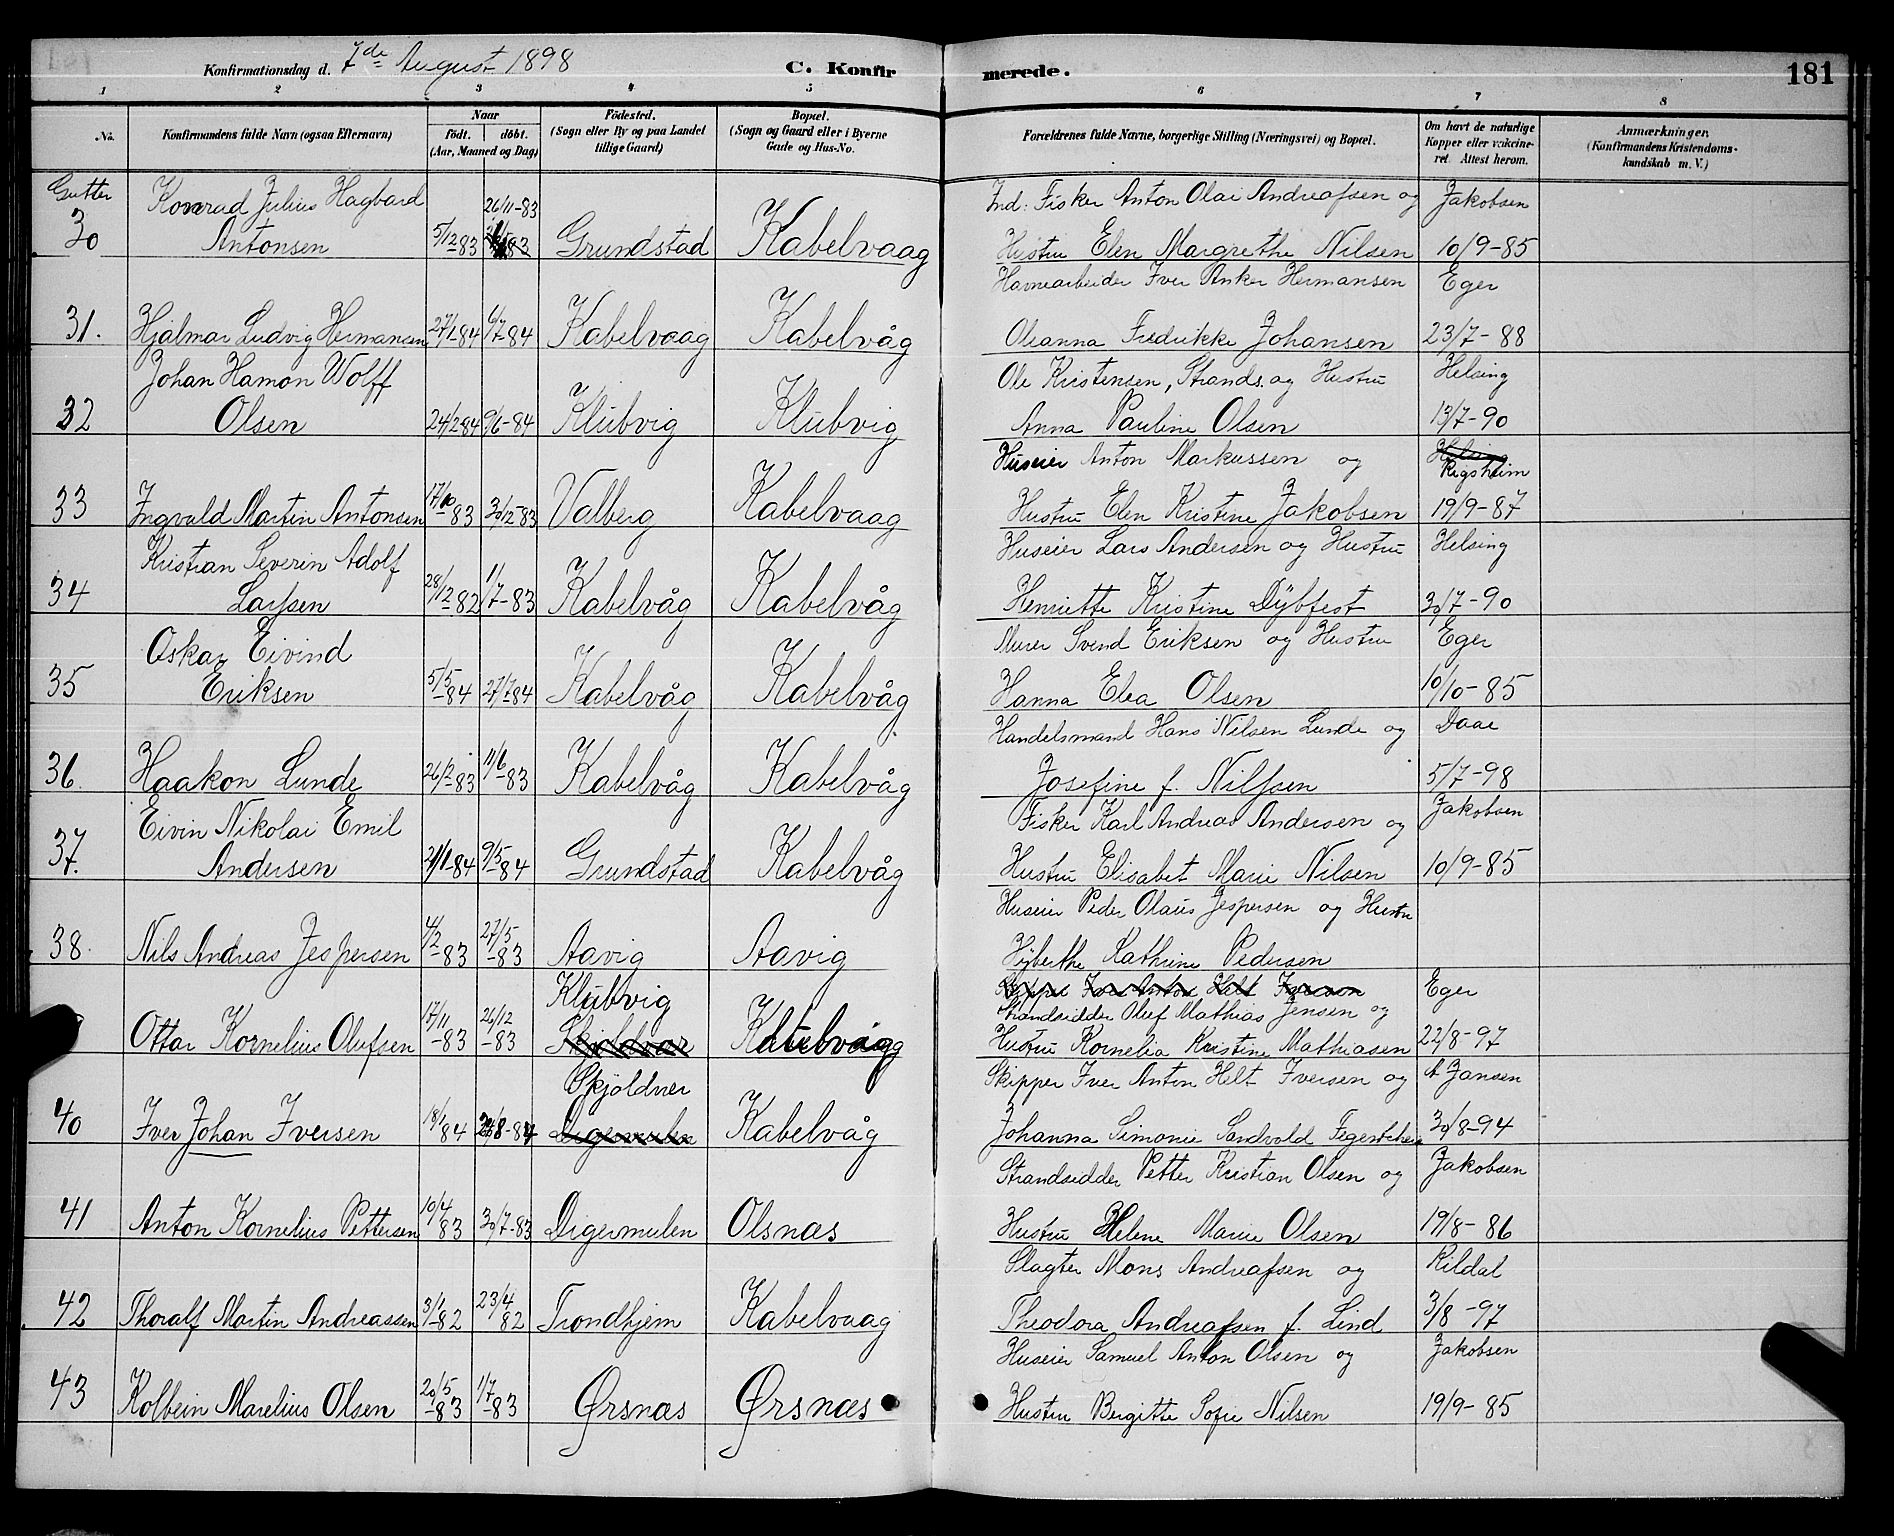 Konfirmationsdag d. 7de August 1898 C. Konfirmerede. 181
1 2 3 4 5 6 7 8
No. Konfirmandens fulde Navn (ogsaa Efternavn) Naar født. døbt. (Aar, Maaned og Dag) Fødested. (Sogn eller By og paa Landet tillige Gaard) Bopæl. (Sogn og Gaard eller i Byerne Gade og Hus-No. Forældrenes fulde Navne, borgerlige Stilling (Næringsvei) og Bopæl. Om havt de naturlige Kopper eller vakcineret. Attest herom. Anmærkninger. (Konfirmandens Kristendomskundskab m. V.)
Gutter Konrad Julius Hagbard 26/11-83 Ind: Fisker Anton Olai Andreassen og Jakobsen
30 Antonsen 5/12-83 Grundstad Kabelvaag Hustru Elen Margrethe Nilsen 10/9-85
Havnearbeider Iver Anker Hermansen Eger
31. Hjalmar Ludvig Hermansen 27/1-84 6/7-84 Kabelvaag Kabelvåg Oleanna Fredrikke Johansen 23/7-88
Johan Hamon Wolff Ole Kristensen, Strands. og Hustru Helsing
32 Olsen 24/2 84 9/6-84 Klubvig Klubvig Anna Pauline Olsen 13/7-90
Huseier Anton Markussen og Helsing Rigsheim
33 Ingvald Martin Antonsen 17/10-83 30/12-83 Valberg Kabelvaag Hustru Elen Kristine Jakobsen 19/9-87
Kristian Severin Adolf Huseier Lars Andersen og Hustru Helsing
34 Larssen 28/12-82 1/7-83 Kabelvåg Kabelvåg Henriette Kristine Dybfest 30/7-90
Oskar Eivind Murer Svend Eriksen og Hustru Eger
35 Eriksen 5/5-84 27/7-84 Kabelvåg Kabelvåg Hanna Elea Olsen 10/10-85
Handelsmand Hans Nilsen Lunde og Daae
36 Haakon Lunde 26/2-83 11/6-83 Kabelvåg Kabelvåg Josefine f. Nilssen 5/7-98
Eivin Nikolai Emil Fisker Karl Andreas Andersen og Jakobsen
37. Andersen 21/1-84 9/5-84 Grundstad Kabelvåg Hustru Elisabet Marie Nilsen 10/9-85
Huseier Peder Olaus Jespersen og Hustru
38. Nils Andreas Jespersen 4/2-83 27/5-83 Aavig Aavig Kathrine Pedersen
Klubvig Skipper Iver Anton Helt Iversen Eger
Strandsidder Oluf Mathias Jensen og
Ottar Kornelius Olufsen 17/11-83 26/12-83 Skjoldvær Hustru Kornelia Kristine Mathiasen 22/8-97
Skjoldvær Skipper Iver Anton Helt Iversen og A Jansen
40 Iver Johan Iversen 18/1 84 Digermulen Kabelvåg Johanna Simonie Sandvold 30/8-94
Strandsidder Petter Kristian Olsen og Jakobsen
41 Anton Kornelius Pettersen 10/4 83 30/7-83 Digermulen Olsnæs Hustru Helene Marie Olsen 19/8-86
Slagter Mons Andreassen og Rildal
42 Thoralf Martin Andreassen 3/1-82 23/4 82 Trondhjem Kabelvaag Theodora Andreassen f. Lind 3/8-97
Huseier Samuel Anton Olsen og Jakobsen
43 Kolbein Marelius Olsen 20/5-83 1/7-83 Ørsnæs Ørsnæs Hustru Bergitte Sofie Nilsen 19/9-85